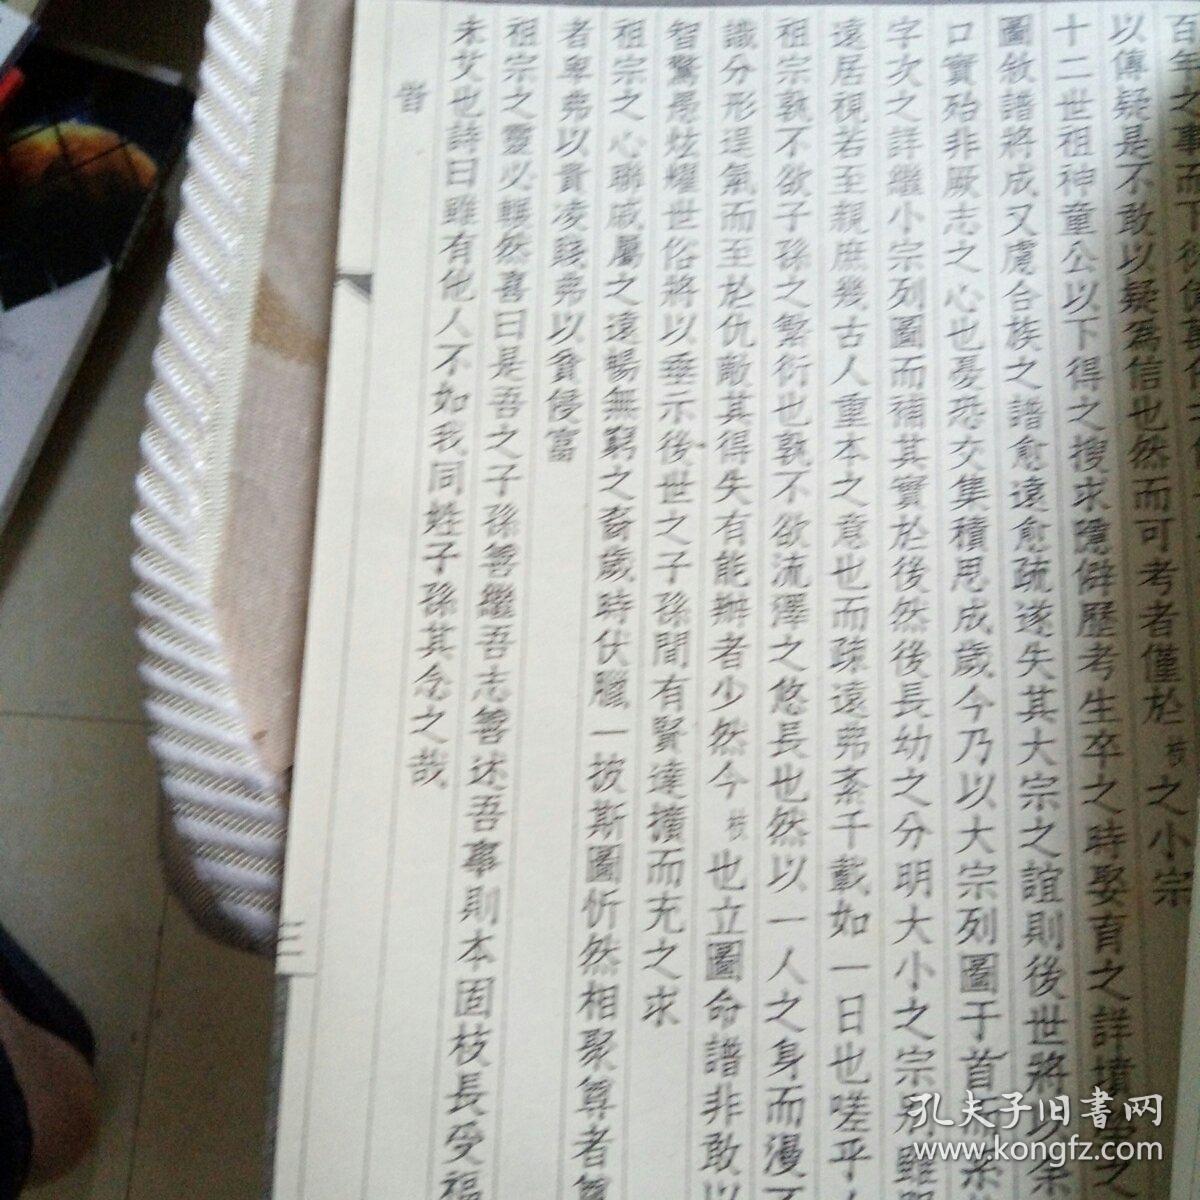 百年之事而下後
以傳疑是不敢以疑為信也然而可考者僅於枝之小宗
十二世祖神童公以下得之搜求隱僻歷考生卒之時娶育之詳墳
圖敘譜將成又慮合族之譜愈遠愈疏遂失其大宗之誼則後世將以余
口實殆非厥志之心也憂恐交集積思成歲今乃以大宗列圖于首而系
字次之詳繼小宗列圖而補其實於後然後長幼之分明大小之宗別雖
遠居視若至親庶幾古人重本之意也而疎遠弗紊千載如一日也嗟乎人
祖宗孰不欲子孫之繁衍也孰不欲流澤之悠長也然以一人之身而漫不
識分形逞氣而至於仇敵其得失有能辦者少然今枝也立圖命譜非敢以
智驚愚炫耀世俗將以垂示後世之子孫間有賢達擴而充之求
祖宗之心聯戚屬之遠暢無窮之裔歲時伏臘一披斯圖忻然相聚尊者尊
者卑弗以貴凌賤弗以貧侵富
祖宗之靈必囅然喜曰是吾之子孫善繼吾志善述吾事則本固枝長受福
未艾也詩曰雖有他人不如我同姓子孫其念之哉
旹
三
孔夫子旧書网
www.kongfz.com